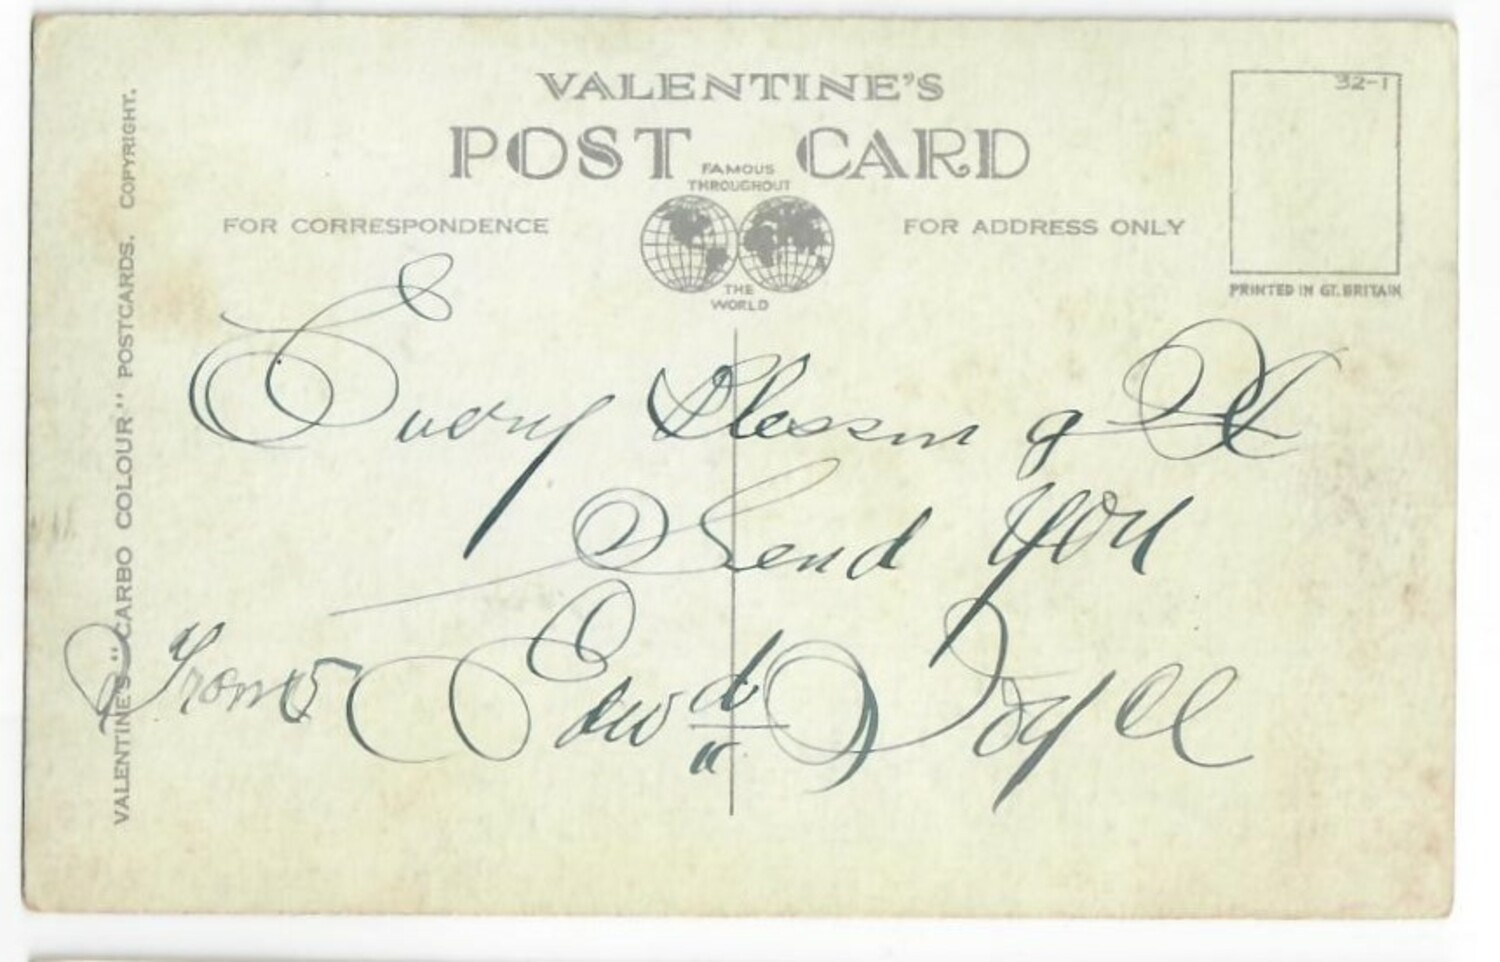 VALENTINE'S
POST CARD
FAMOUS
THROUGHOUT
THE
WORLD
FOR CORRESPONDENCE
FOR ADDRESS ONLY
32-1
PRINTED IN GT. BRITAIN
VALENTINE'S "CARBO COLOUR" POSTCARDS. COPYRIGHT.
Every Blessing I
Send You
From Edwd Doyle